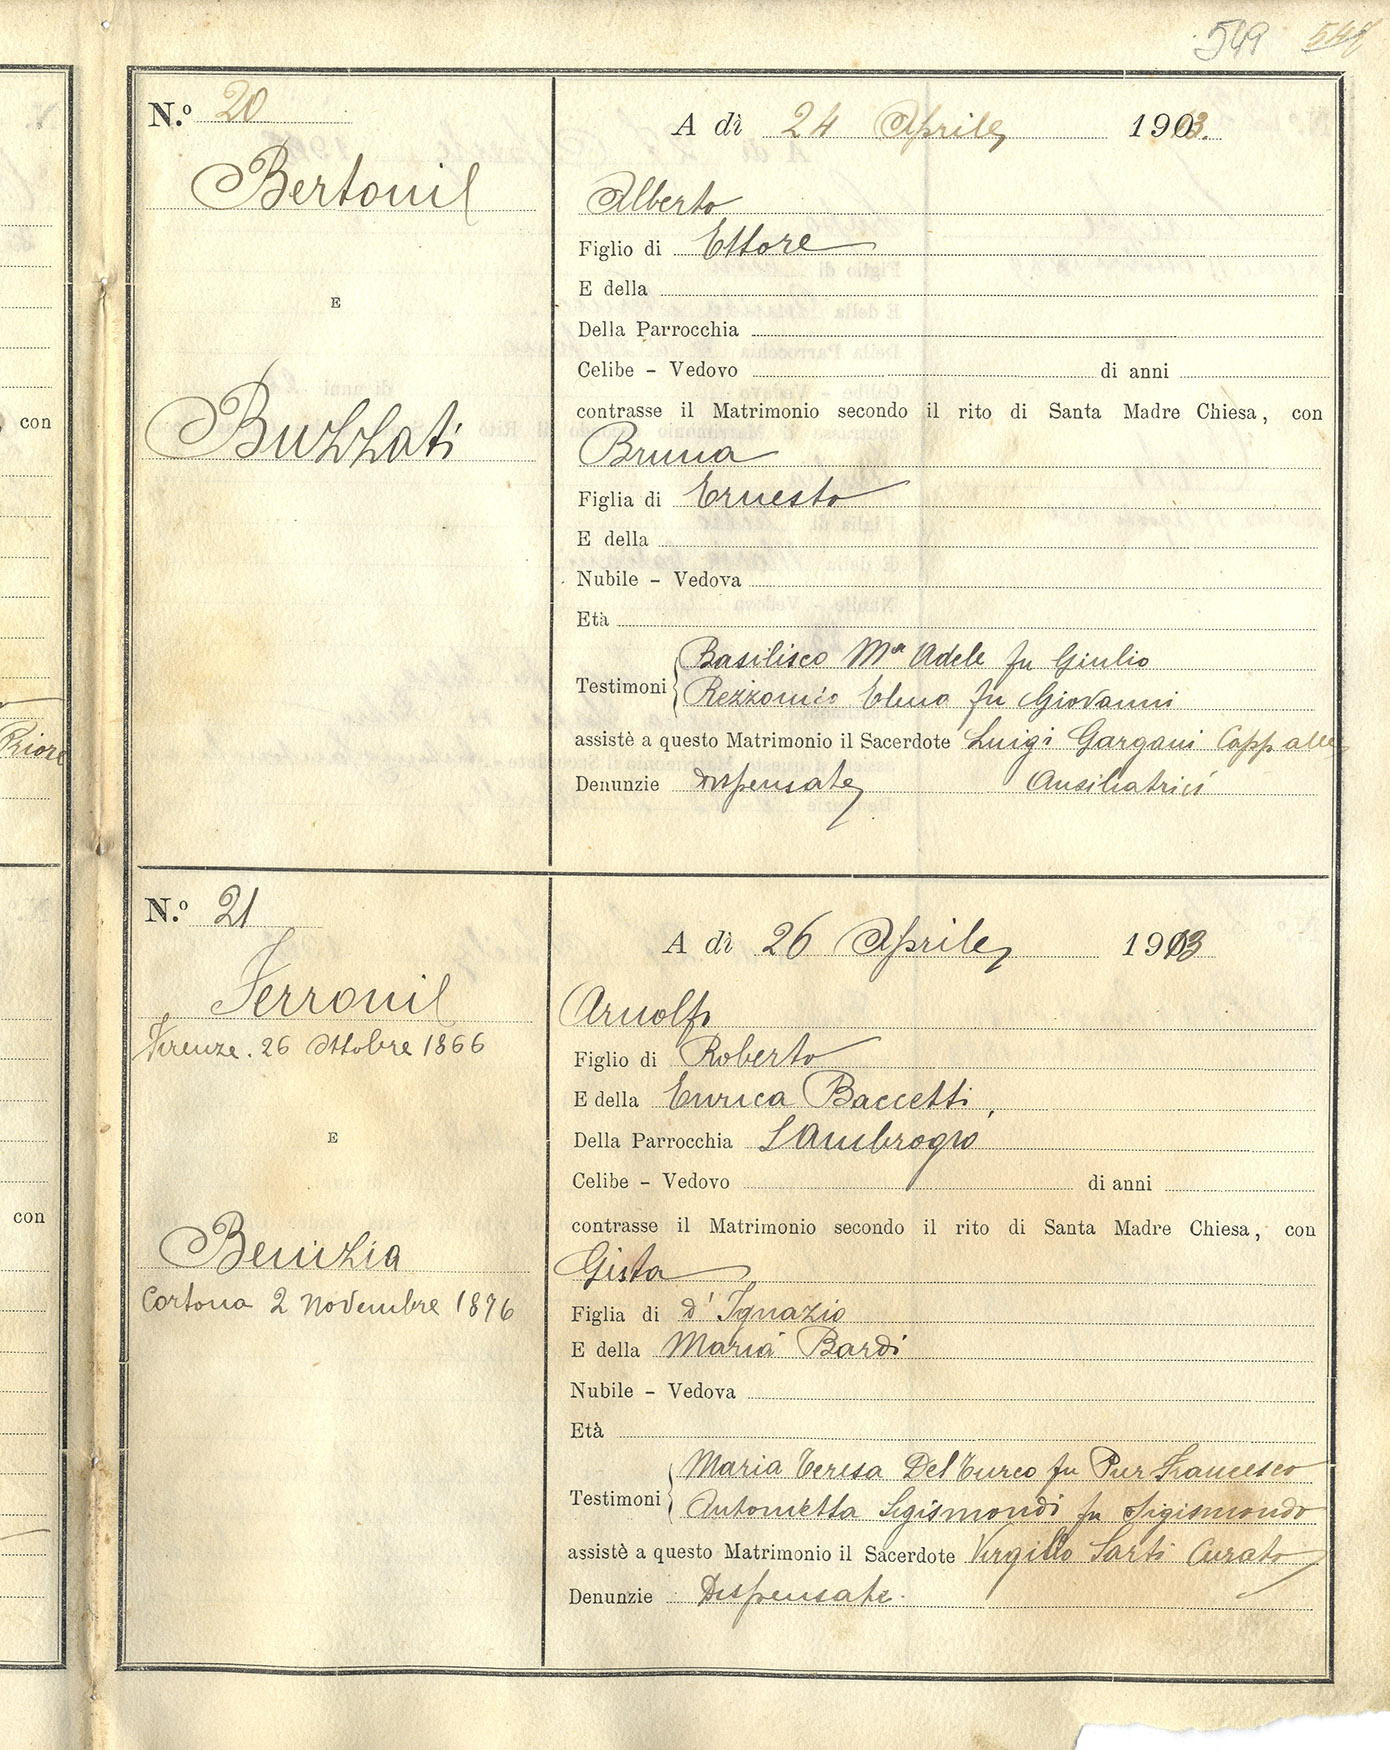 549 548
N.º 20
Bertouil
E
Buzzati
A dì 24 Aprile 1913.
Alberto
Figlio di Ettore
E della
Della Parrocchia
Celibe – Vedovo di anni
contrasse il Matrimonio secondo il rito di Santa Madre Chiesa, con
Bruna
Figlia di Ernesto
E della
Nubile – Vedova
Età
Testimoni
Basilisco Mª Adele fu Giulio
Rezzonico Elena fu Giovanni
assistè a questo Matrimonio il Sacerdote Luigi Gargani Capp alle
Denunzie Dispensate Ausiliatrici
N.º 21
Ferrouil
Firenze. 26 Ottobre 1866
E
Benizia
Cortona 2 Novembre 1876
A dì 26 Aprile 1913
Arnolfo
Figlio di Roberto
E della Enrica Baccetti,
Della Parrocchia S Ambrogio
Celibe – Vedovo di anni
contrasse il Matrimonio secondo il rito di Santa Madre Chiesa, con
Gista
Figlia di d' Ignazio
E della Maria Bardi
Nubile – Vedova
Età
Testimoni
Maria Teresa Del Turco fu Pier Francesco
Antonietta Sigismondi fu Sigismondo
assistè a questo Matrimonio il Sacerdote Virgilio Sarti Curato
Denunzie Dispensate.
con
Priore
con